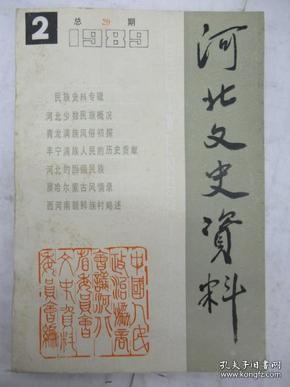 2
总 29 期
1989
河北文史资料
民族史料专辑
河北少数民族概况
青龙满族风俗初探
丰宁满族人民的历史贡献
河北的回回民族
察哈尔蒙古风情录
西河南朝鲜族村略述
中国人民
政治协商
会议河北
省委员会
文史资料
委员会编
孔夫子旧书网